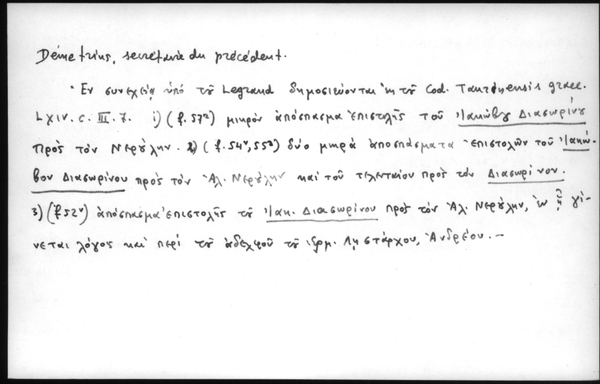 Démétrius, secrétaire du précédent.
Ἐν συνεχείᾳ ὑπὸ τοῦ Legrand δημοσιεύονται ἐκ τοῦ Cod. Taurinensis graec.
LXIV. c. III. 7. 1) (f. 57ʳ) μικρὸν ἀπόσπασμα ἐπιστολῆς τοῦ Ἰακώβου Διασωρίνου
πρὸς τὸν Νερούλην. 2) (f. 54ᵛ, 55ʳ) δύο μικρὰ ἀποσπάσματα ἐπιστολῶν τοῦ Ἰακώ-
βου Διασωρίνου πρὸς τὸν Ἀλ. Νερούλην καὶ τοῦ τελευταίου πρὸς τὸν Διασωρίνον.
3) (f. 52ᵛ) ἀπόσπασμα ἐπιστολῆς τοῦ Ἰακ. Διασωρίνου πρὸς τὸν Ἀλ. Νερούλην, ἐν ᾗ γί-
νεται λόγος καὶ περὶ τοῦ ἀδελφοῦ τοῦ Λῃστάρχου, Ἀνδρέου. –